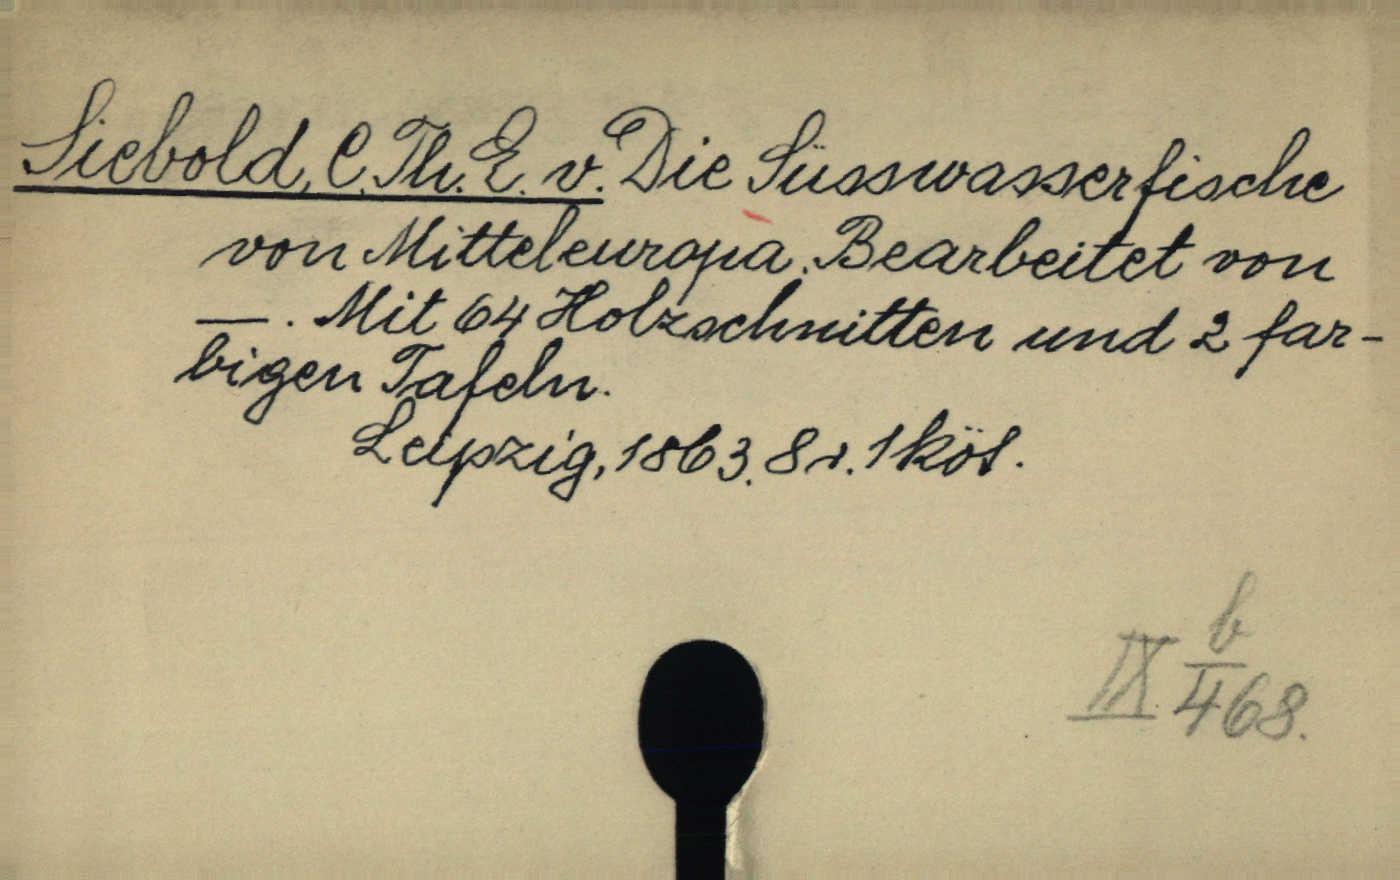 Siebold, C. Th. E. v. Die Süsswasserfische
von Mitteleuropa. Bearbeitet von
—. Mit 64 Holzschnitten und 2 far-
bigen Tafeln.
Leipzig, 1863. 8r. 1 köt.
IX b/468.